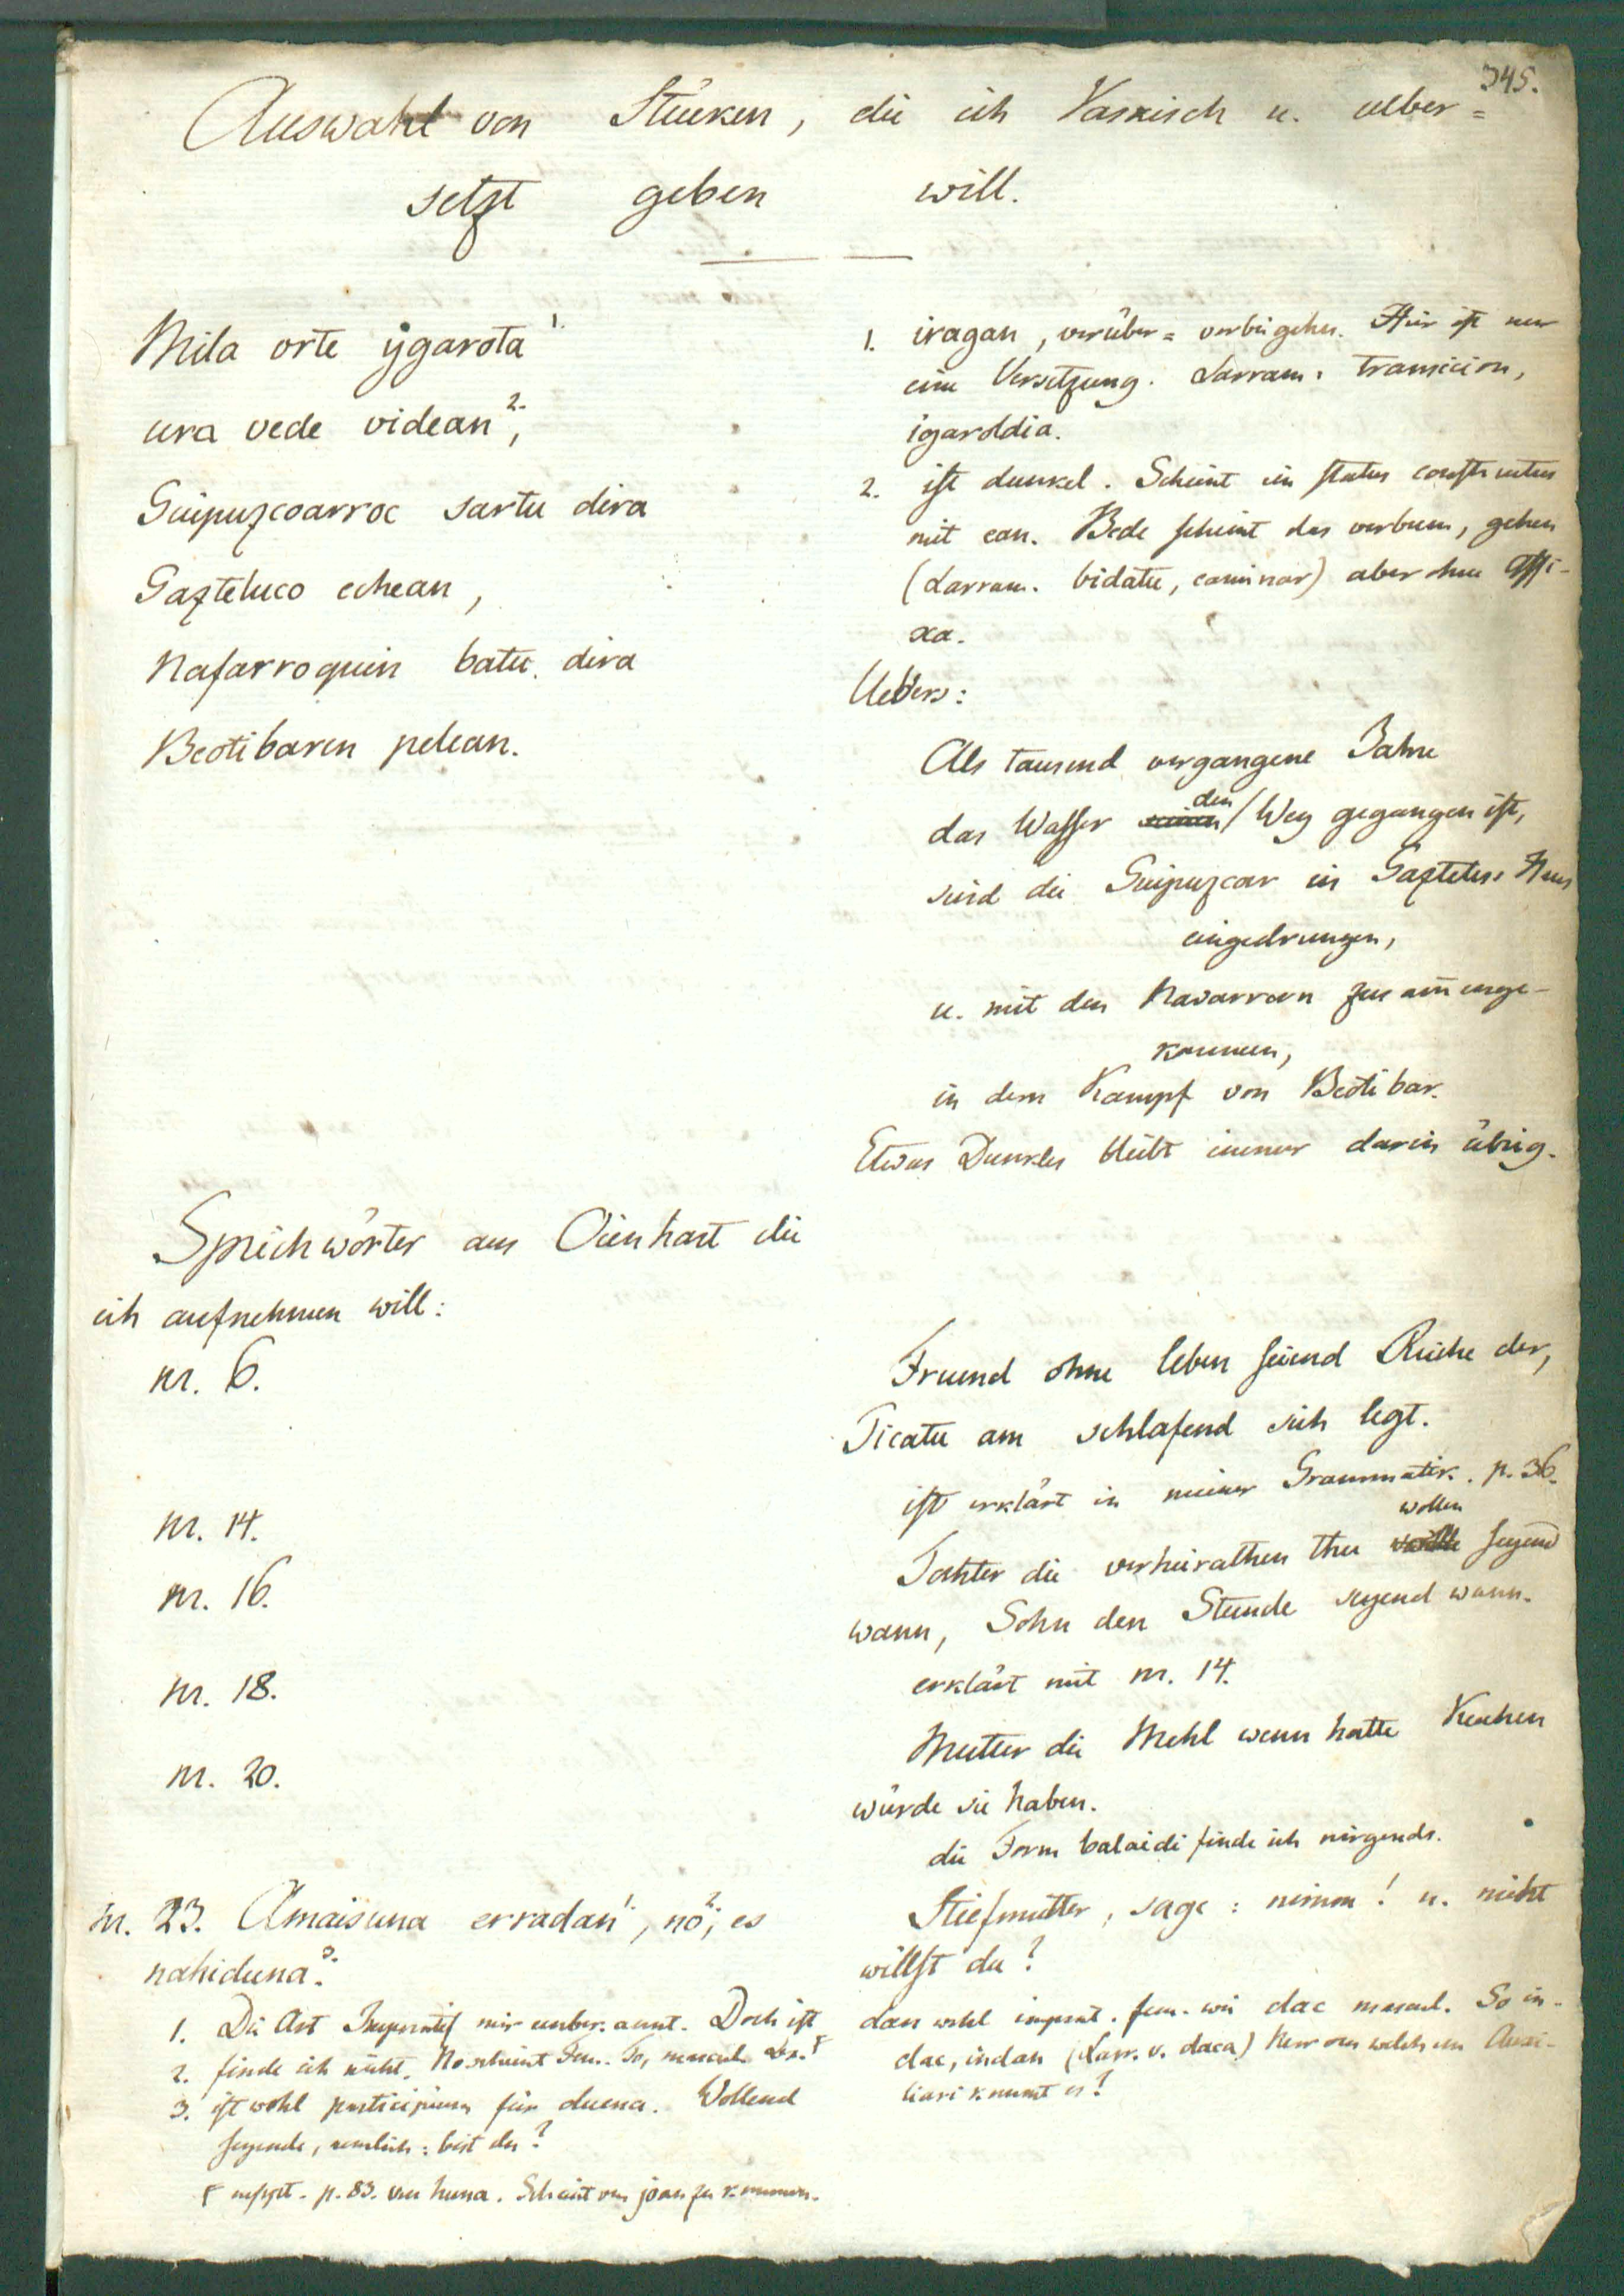 345.
Auswahl von Stücken, die ich Vaskisch u. ueber=
setzt geben will.
Mila orte ygarota 1.
ura vede videan 2.,
Guipuzcoarroc sartu dira
Gazteluco echean,
Nafarroquin batu dira
Beotibaren pelean.
1. iragan, vorüber= vorbeigehen. Hier ist nur
eine Versetzung. Larram. transicion,
igaroldia.
2. ist dunkel. Scheint ein status constructus
mit ean. Bede scheint das verbum, gehen
(Larram. bidatu, caminar) aber ohne Affi-
xa.
Uebers:
Als tausend vergangene Jahre
das Wasser den Weg gegangen ist,
sind die Guipuzcoar in Gaztelus Haus
eingedrungen,
u. mit den Navarrern zusammenge-
kommen,
in dem Kampf von Beotibar.
Etwas Dunkles bleibt immer darin übrig.
Sprichwörter aus Oienhart die
ich aufnehmen will:
nr. 6.
Freund ohne leben seiend Reiche der,
Ticatu am schlafend sich legt.
nr. 14.
ist erklärt in meiner Grammatik. p. 36.
nr. 16.
Tochter die verheirathen thu wollen seyend
wann, Sohn den Stunde seyend wann.
nr. 18.
erklärt mit nr. 14.
nr. 20.
Mutter die Mehl wenn hatte Kuchen
würde sie haben.
die Form balaidi finde ich nirgends.
nr. 23. Amaisuna erradan 1., no 2.; es
nahiduna 3.
Stiefmutter, sage: nimm! u. nicht
willst du?
1. Die Art Imperatif mir unbekannt. Doch ist
dan wohl imperat. fem. wie dac mascul. So in-
dac, indan (Larr. v. daca) Nur von welchem Auxi-
liari kommt es?
2. finde ich nicht. No scheint Fem. To, mascul.
3. ist wohl participium für duena. Wollend
seyende, nemlich: bist du?
p. 83. von huna. Scheint von joan zu kommen.